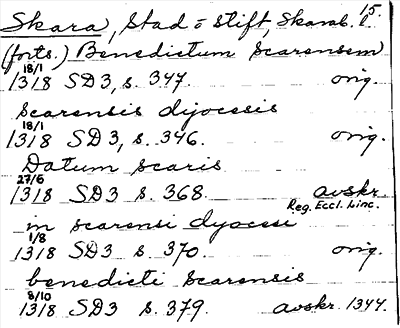 Skara, Stad = Stift, Skarab. l. 15.
(forts.) Benedictum Scarensem
18/1
1318 SD3, s. 347. orig.
scarensis dyocesis
18/1
1318 SD3, s. 346. orig.
Datum scaris
27/6
1318 SD3 s. 368. avskr.
Reg. Eccl. Linc.
in scarensi dyocesi
1/8
1318 SD3 s. 370. orig.
benedicti Scarensis
8/10
1318 SD3 s. 379. avskr. 1344.